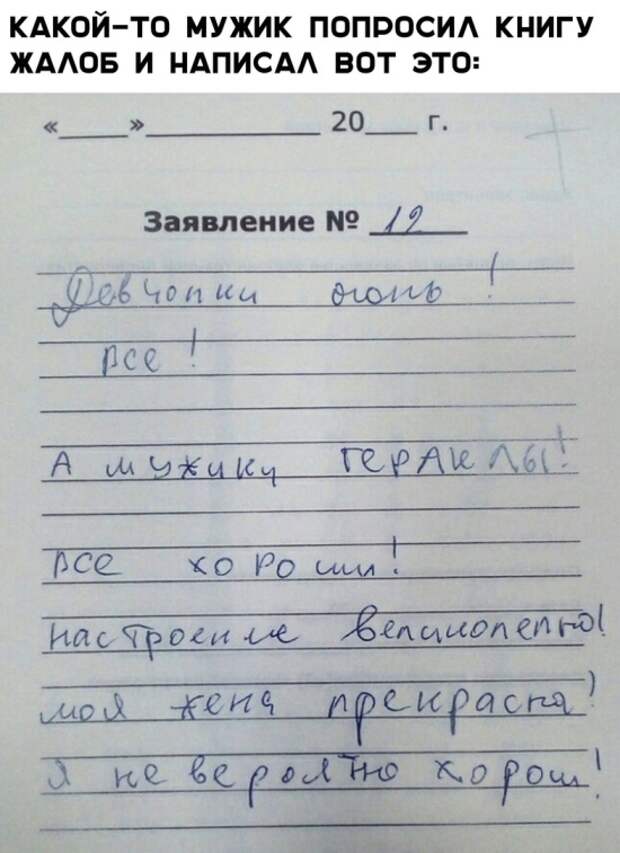 КАКОЙ-ТО МУЖИК ПОПРОСИЛ КНИГУ
ЖАЛОБ И НАПИСАЛ ВОТ ЭТО:
«____»____________ 20___ г.
Заявление № 12
Девчонки огонь!
Все!
А мужики ГЕРАКЛЫ!
Все хороши!
настроение великолепно!
моя жена прекрасна!
Я не вероятно хорош!